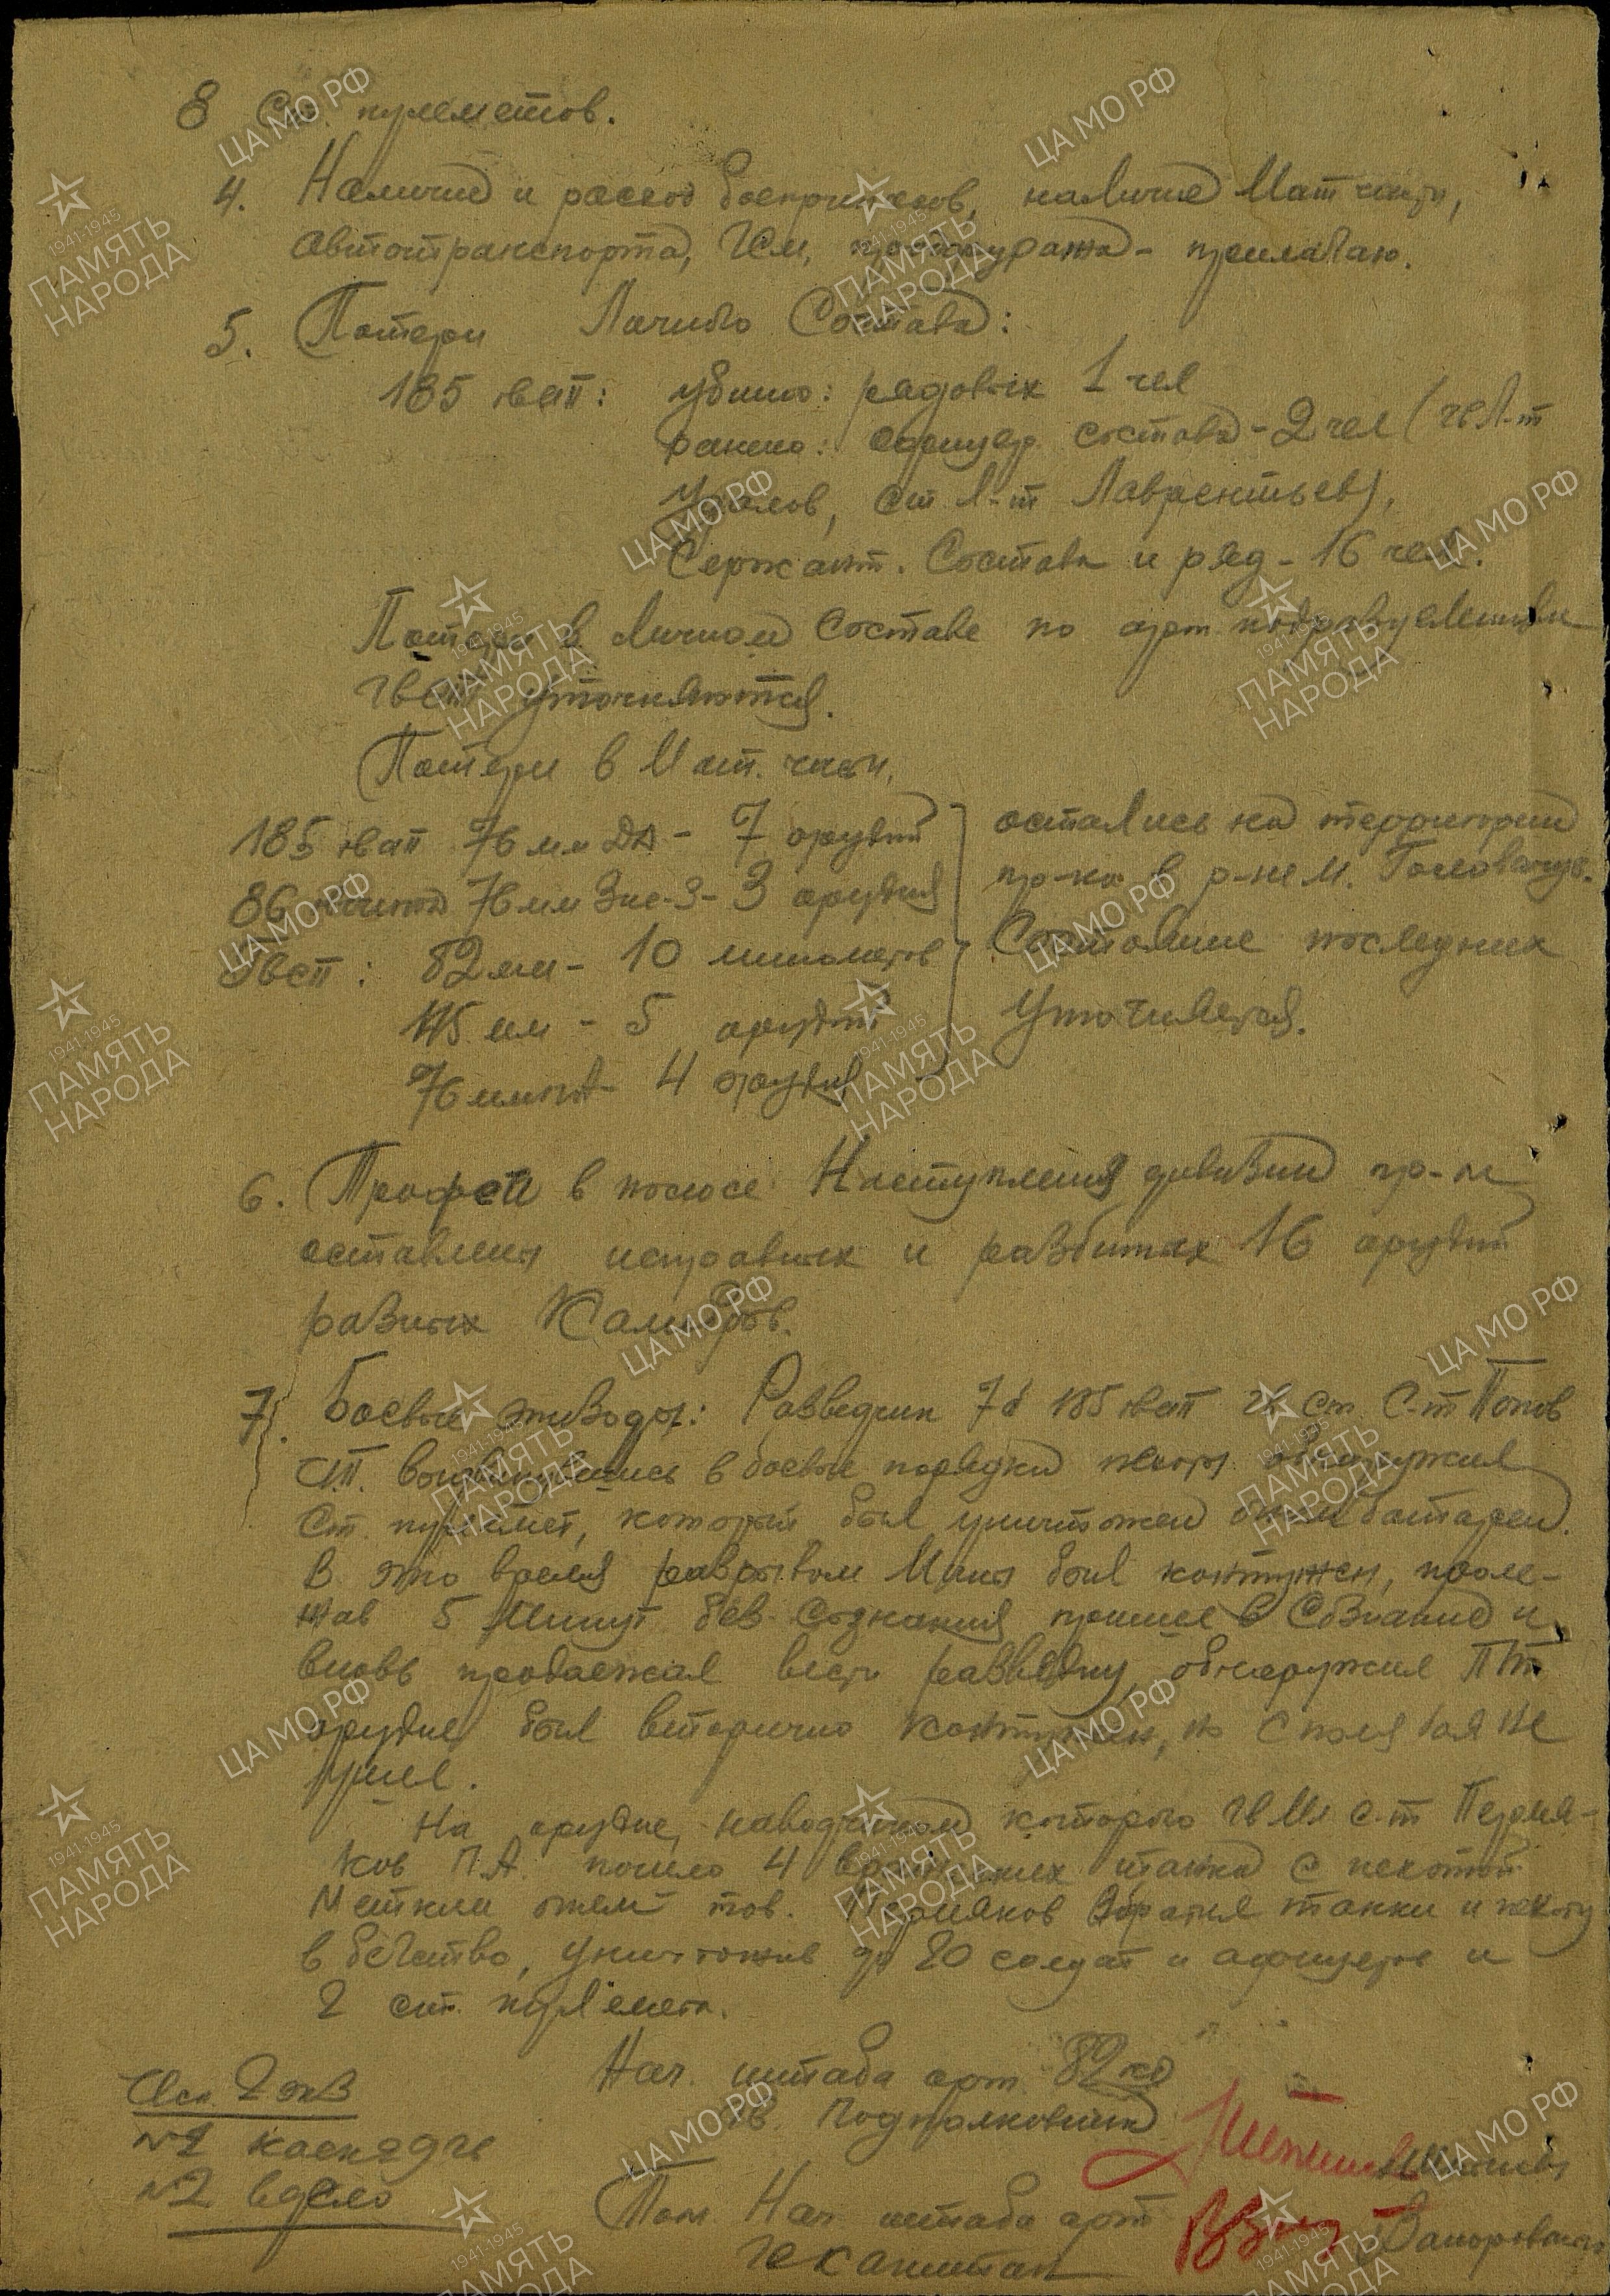 8 Ст. пулеметов.
4. Наличие и расход боеприпасов, наличие Мат части,
автотранспорта, ГСМ, - прилагаю.
5. Потери Личного Состава:
185 гвап: убито: рядовых 1 чел
ранено: офицер. состава - 2 чел (гв Л-т
ст Л-т Лаврентьев),
Сержант. Состава и ряд - 16 чел.
Потери в Личном Составе по арт. подразделениям
гвсп уточняются.
Потери в Мат. части.
185 гвап 76 мм ДА - 7 орудий
86 76 мм Зис-3 - 3 орудия
гвсп: 82 мм - 10 минометов
45 мм - 5 орудий
76 мм ПА - 4 орудия
остались на территории
пр-ка в р-не м.
Состояние последних
Уточняется.
6. Трофеи в полосе Наступления дивизии пр-к
оставлены исправных и разбитых 16 орудий
разных Калибров.
7. Боевые эпизоды: Разведчик 7б 185 гвап гв Ст. С-т Попов
выдвинувшись в боевые порядки пехоты обнаружил
Ст. пулемет, который был уничтожен огнем батареи.
В это время разрывом Мины был контужен, проле-
жав 5 Минут без Сознания пришел в Сознание и
вновь продолжал вести разведку, обнаружил ПТ
орудие, был вторично контужен, но с поля боя не
ушел.
На орудие, наводчиком которого гв Мл с-т Пермя-
ков П.А. пошло 4 вражеских танка с пехотой
Метким огнем тов. Пермяков Обратил танки и пехоту
в бегство, уничтожив до 20 солдат и офицеров и
2 ст. пулемета.
Нач. штаба арт. 82 кд
Гв. Подполковник
Пом. Нач. штаба арт
Гв капитан
Исп. 2 экз
№1
№2 в дело
ЦА МО РФ
1941-1945
ПАМЯТЬ
НАРОДА